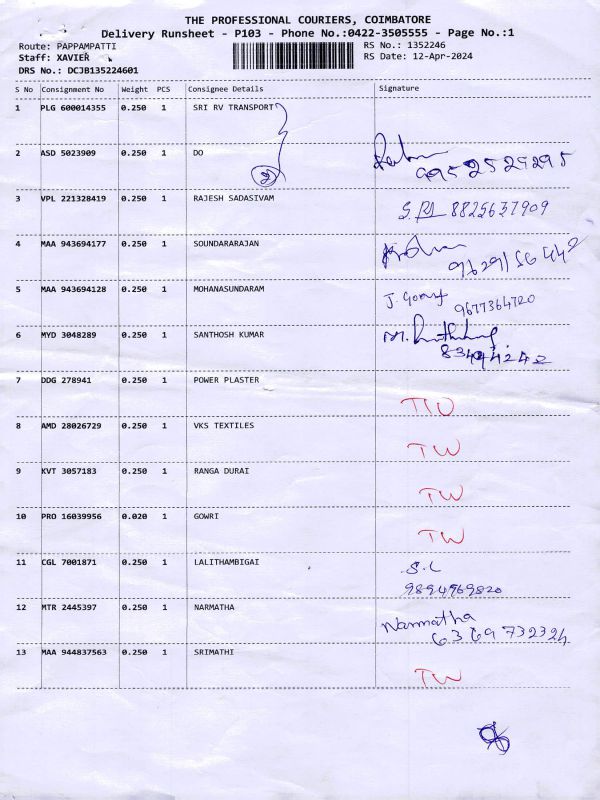 THE PROFESSIONAL COURIERS, COIMBATORE
Delivery Runsheet - P103 - Phone No.:0422-3505555 - Page No.:1
Route: PAPPAMPATTI
RS No.: 1352246
Staff: XAVIER
RS Date: 12-Apr-2024
DRS No.: DCJB135224601
S No Consignment No Weight PCS Consignee Details Signature
1 PLG 600014355 0.250 1 SRI RV TRANSPORT
2 ASD 5023909 0.250 1 DO
2 9952529295
3 VPL 221328419 0.250 1 RAJESH SADASIVAM
8825637909
4 MAA 943694177 0.250 1 SOUNDARARAJAN
9629156442
5 MAA 943694128 0.250 1 MOHANASUNDARAM
J. 9677364720
6 MYD 3048289 0.250 1 SANTHOSH KUMAR
M.
7 DDG 278941 0.250 1 POWER PLASTER
TW
8 AMD 28026729 0.250 1 VKS TEXTILES
TW
9 KVT 3057183 0.250 1 RANGA DURAI
TW
10 PRO 16039956 0.020 1 GOWRI
TW
11 CGL 7001871 0.250 1 LALITHAMBIGAI
S.L
9894969820
12 MTR 2445397 0.250 1 NARMATHA
Narmatha
6369732324
13 MAA 944837563 0.250 1 SRIMATHI
TW